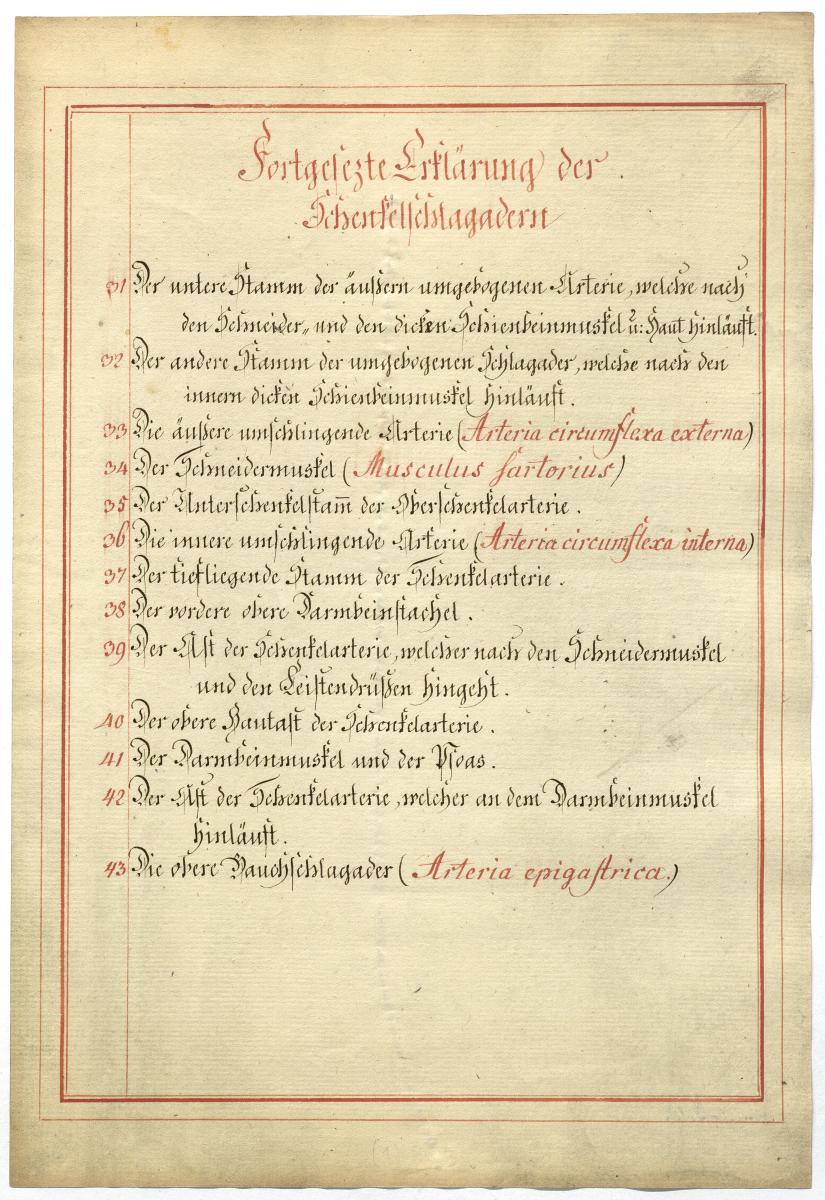 Fortgesezte Erklärung der
Schenkelschlagadern
31 Der untere Stamm der äußern umgebogenen Arterie, welche nach
den Schneider„ und den dicken Schienbeinmuskel u: Haut hinläuft.
32 Der andere Stamm der umgebogenen Schlagader, welche nach den
innern dicken Schienbeinmuskel hinläuft.
33 Die äußere umschlingende Arterie (Arteria circumflexa externa)
34 Der Schneidermuskel (Musculus sartorius)
35 Der Unterschenkelstam̄ der Oberschenkelarterie.
36 Die innere umschlingende Arterie (Arteria circumflexa interna)
37 Der tiefliegende Stamm der Schenkelarterie.
38 Der vordere obere Darmbeinstachel.
39 Der Ast der Schenkelarterie, welcher nach den Schneidermuskel
und den Leistendrüßen hingeht.
40 Der obere Hautast der Schenkelarterie.
41 Der Darmbeinmuskel und der Psoas.
42 Der Ast der Schenkelarterie, welcher an dem Darmbeinmuskel
hinläuft.
43 Die obere Bauchschlagader (Arteria epigastrica.)